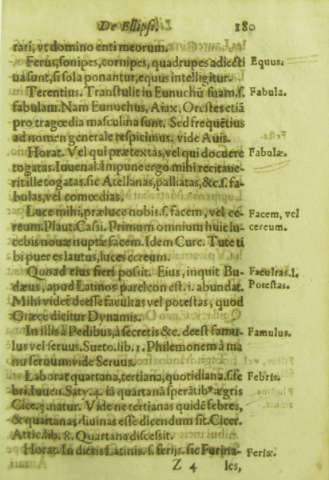 De Ellipsi. 180
rari, vt domino enti meorum.
Ferus, sonipes, cornipes, quadrupes adiecti Equus.
ua sunt, si sola ponantur, equus intelligitur.
Terentius. Transtulit in Eunuchũ suam. s. Fabula.
fabulam. Nam Eunuchus, Aiax. Orestes etiã
pro tragœdia masculina sunt. Sed frequẽtius
ad nomen generale respicimus. vide Auis.
Horat. Vel qui prætextas, vel qui docuere Fabulæ.
togatas. Iuuenal. Impune ergo mihi recitaue-
rit ille togatas. sic Atellanas, palliatas, &c. s. fa-
bulas, vel comœdias.
Luce mihi, præluce nobis. s. facem, vel ce- Facem, vel
reum. Plaut. Casii. Primum omnium huic lu- cereum.
cebis nouæ nuptæ facem. Idem Curc. Tute ti
bi puer es lautus, luces cereum.
Quoad eius fieri possit. Eius, inquit Bu- Facultas. l.
dæus, apud Latinos parelcon est. i. abundat. Potestas.
Mihi videt deesse facultas vel potestas, quod
Græce dicitur Dynamis.
In illis à Pedibus, à secretis &c. deest famu- Famulus.
lus vel seruus. Sueto. lib. 1. Philemonem à ma
nu seruum vide Seruus.
Laborat quartana, tertiana, quotidiana. s. fe Febris.
bri. Iuuen. Saty. 4. iã quartanã sperãtibꝰ ægris
Cice. 3. natur. Vide ne tertianas quidẽ febres,
& quartanas, diuinas esse dicendum sit. Cicer.
Attic. lib. 8. Quartana discessit.
Horat. In dictis Latinis. s. ferijs. sic Furina- Feriæ.
Z 4 les,